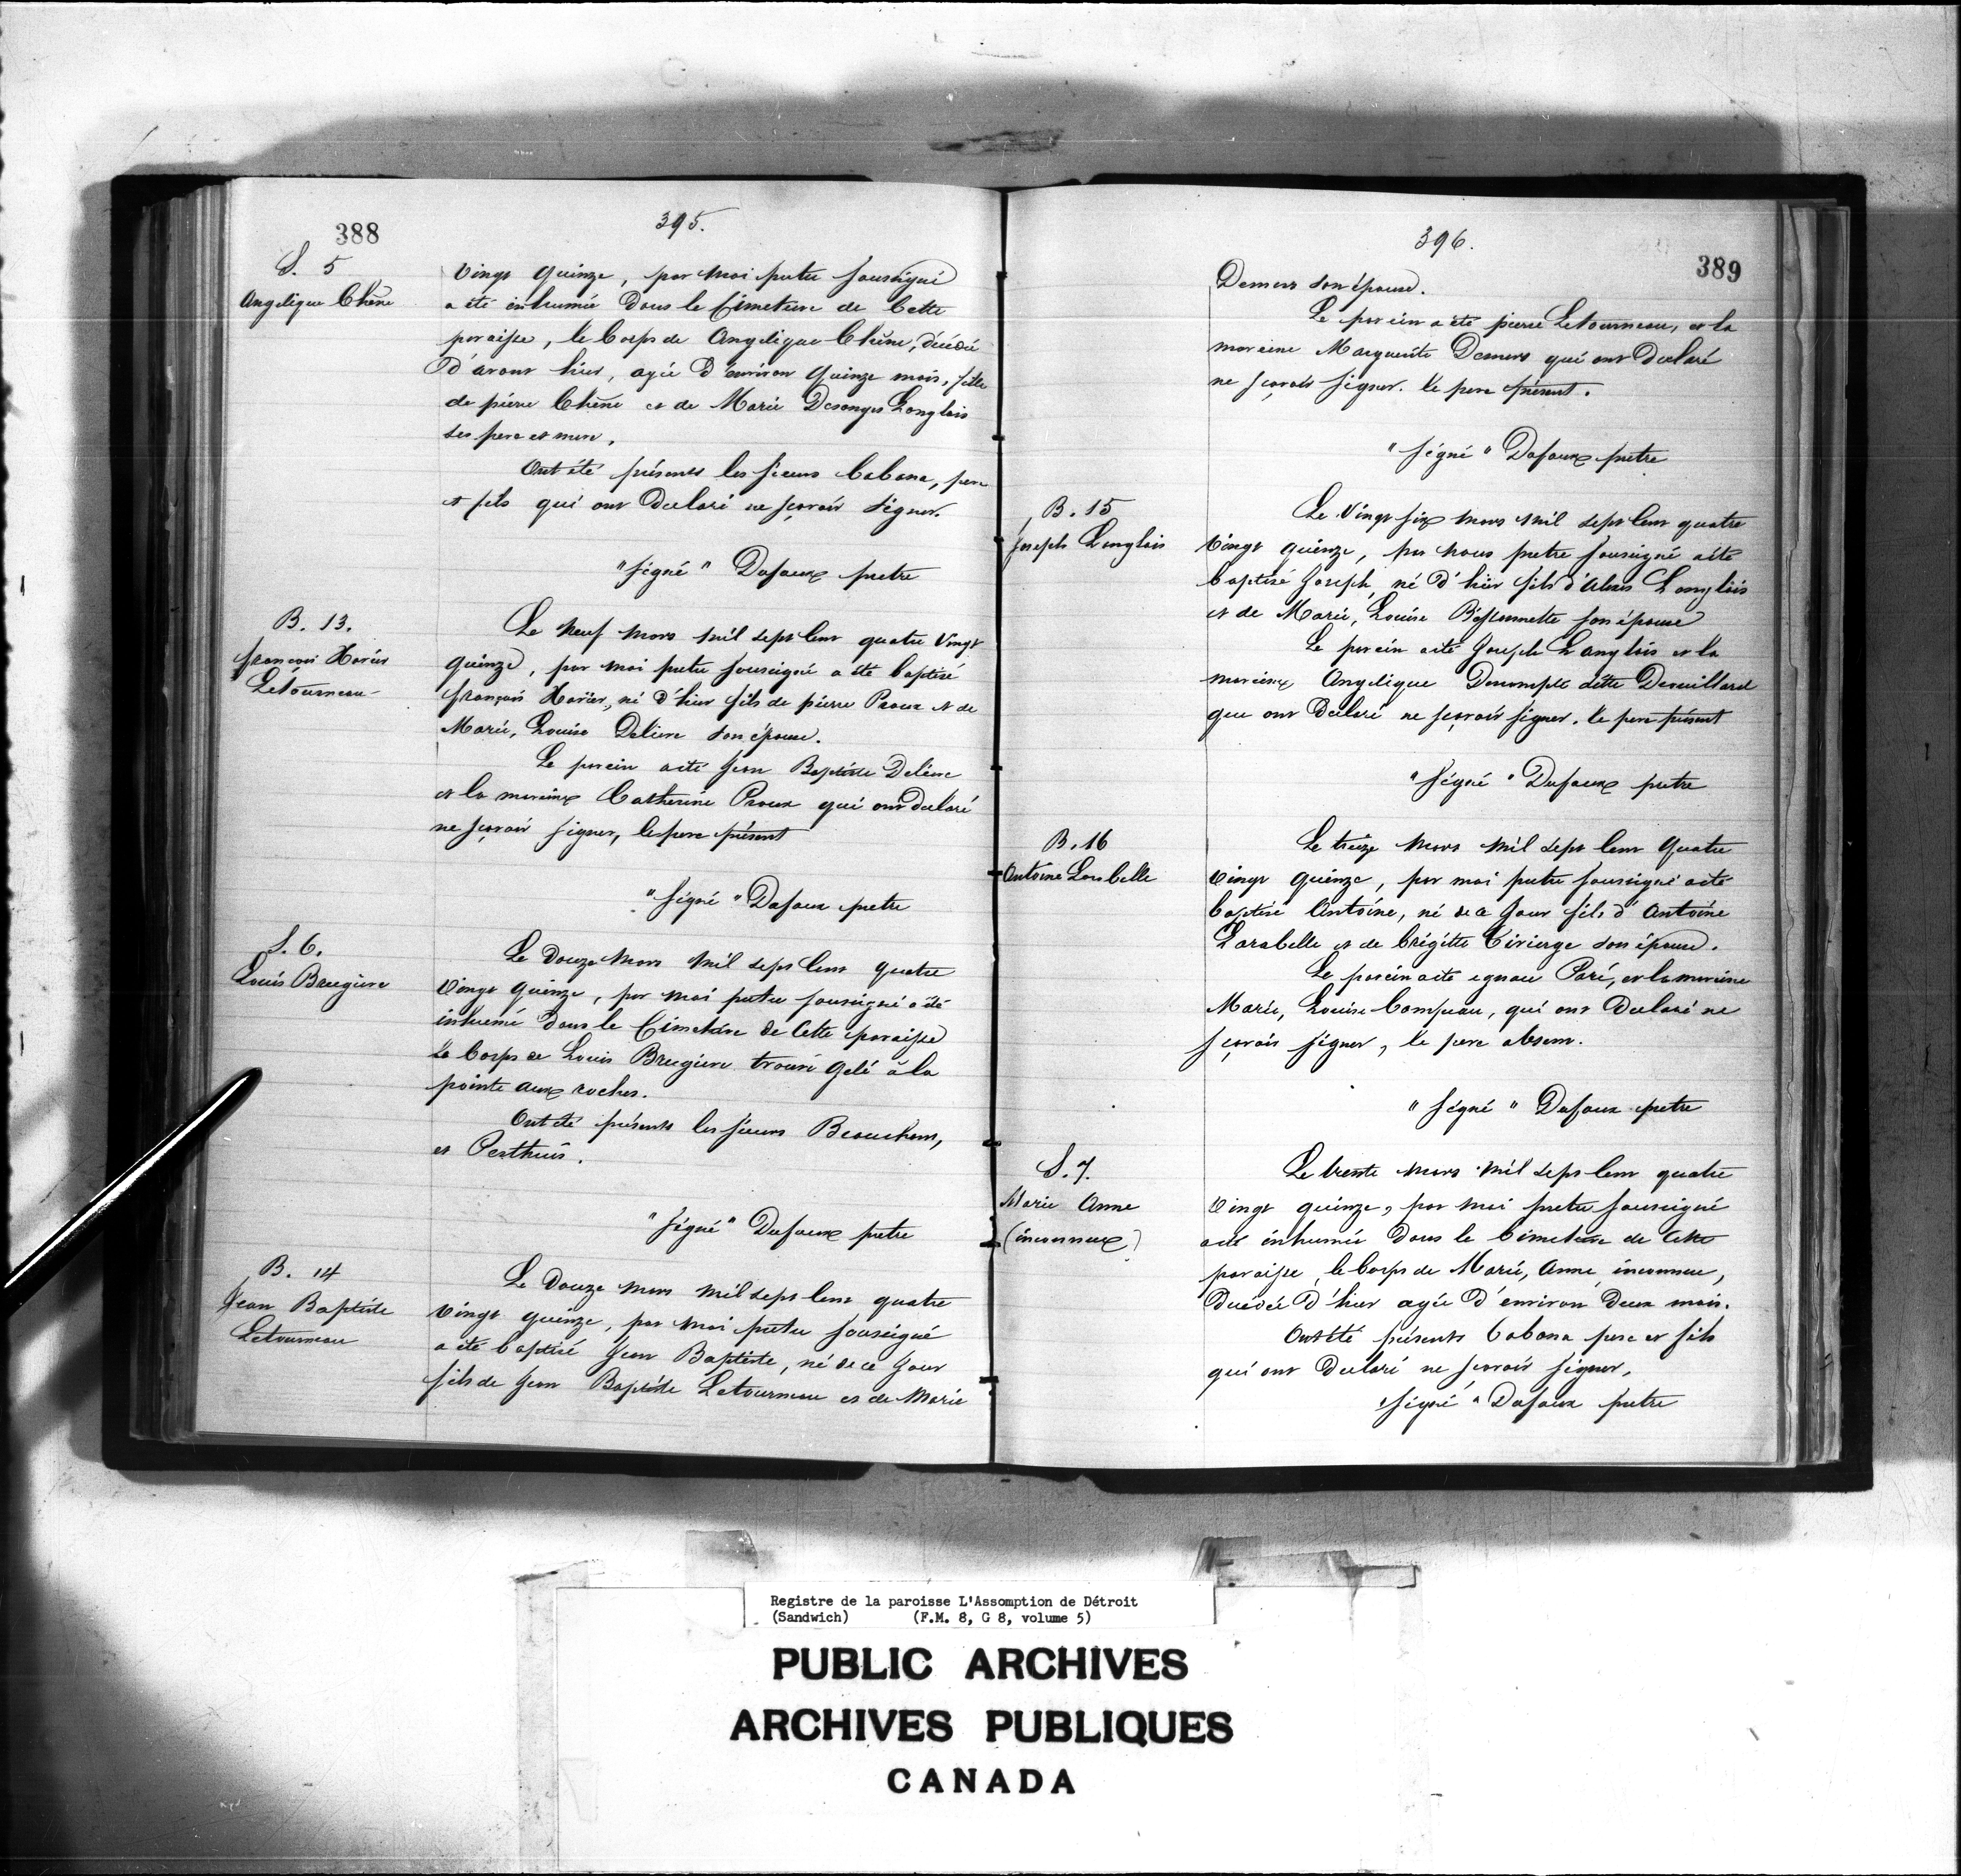 388
395.
S. 5
Angelique Chêne
vingt quinze, par moi pretre soussigné
a été inhumée dans le Cimetiere de Cette
paroisse, le Corps de Angelique Chêne, décédée
d'avant hier, agée d'environ quinze mois, fille
de pierre Chêne et de Marie Desanges Langlois
ses pere et mere.
Ont été présents les sieurs Cabana, pere
et fils qui ont declaré ne sçavoir signer.
"signé" Dufaux pretre
B. 13.
françois Xavier
Letourneau
Le neuf mars mil sept Cent quatre vingt
quinze, par moi pretre soussigné a été baptisé
françois Xavier, né d'hier fils de pierre Proux et de
Marie, Louise Deliere son épouse.
Le parein a été Jean Baptiste Deliere
et la mareine Catherine Proux qui ont declaré
ne sçavoir signer, le pere présent
"signé" Dufaux pretre
S. 6.
Louis Brugiere
Le Douze Mars mil sept Cent quatre
vingt quinze, par moi pretre soussigné a été
inhumé dans le Cimetiere de Cette paroisse
le Corps de Louis Brugiere trouvé gelé à la
pointe aux roches.
Ont été présents les sieurs Beauchem,
et Perthuis.
"signé" Dufaux pretre
B. 14
Jean Baptiste
Letourneau
Le Douze mars mil sept Cent quatre
vingt quinze, par moi pretre soussigné
a été baptisé Jean Baptiste, né de ce Jour
fils de Jean Baptiste Letourneau et de Marie
396.
389
Demers son épouse.
Le parein a été pierre Letourneau, et la
mareine Marguerite Demers qui ont declaré
ne sçavoir signer. le pere présent.
"signé" Dufaux pretre
B. 15
Joseph Langlois
Le vingt six mars mil sept Cent quatre
vingt quinze, par nous pretre soussigné a été
baptisé Joseph, né d'hier fils d'Alexis Langlois
et de Marie, Louise Bissonnette son épouse
Le parein a été Joseph Langlois et la
mareine Angelique ditte Drouillard
que ont declaré ne sçavoir signer. le pere présent
"signé" Dufaux pretre
B. 16
Antoine Larabelle
Le treize mars mil sept Cent Quatre
vingt quinze, par moi pretre soussigné a été
baptisé Antoine, né de ce Jour fils d'Antoine
Larabelle et de brigitte Tivierge son épouse.
Le parein a été ignace Paré, et la mareine
Marie, Louise Campeau, qui ont declaré ne
sçavoir signer, le pere absent.
"signé" Dufaux pretre
S. 7.
Marie Anne
(inconnue)
Le trente mars mil sept Cent quatre
vingt quinze, par moi pretre soussigné
a été inhumée dans le Cimetiere de Cette
paroisse, le Corps de Marie, Anne, inconnue,
décédée d'hier agée d'environ deux mois.
Ont été présents Cabana pere et fils
qui ont declaré ne sçavoir signer,
"signé" Dufaux pretre
Registre de la paroisse L'Assomption de Détroit
(Sandwich) (F.M. 8, G 8, volume 5)
PUBLIC ARCHIVES
ARCHIVES PUBLIQUES
CANADA